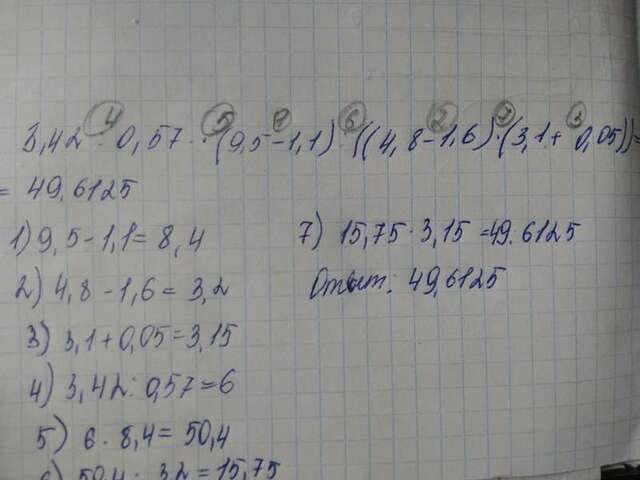 4 5 1 6 2 7 3
3,42 : 0,57 · (9,5 - 1,1) : ((4,8 - 1,6) · (3,1 + 0,05)) =
= 49,6125
1) 9,5 - 1,1 = 8,4
2) 4,8 - 1,6 = 3,2
3) 3,1 + 0,05 = 3,15
4) 3,42 : 0,57 = 6
5) 6 · 8,4 = 50,4
6) 50,4 : 3,2 = 15,75
7) 15,75 · 3,15 = 49.6125
Ответ: 49,6125